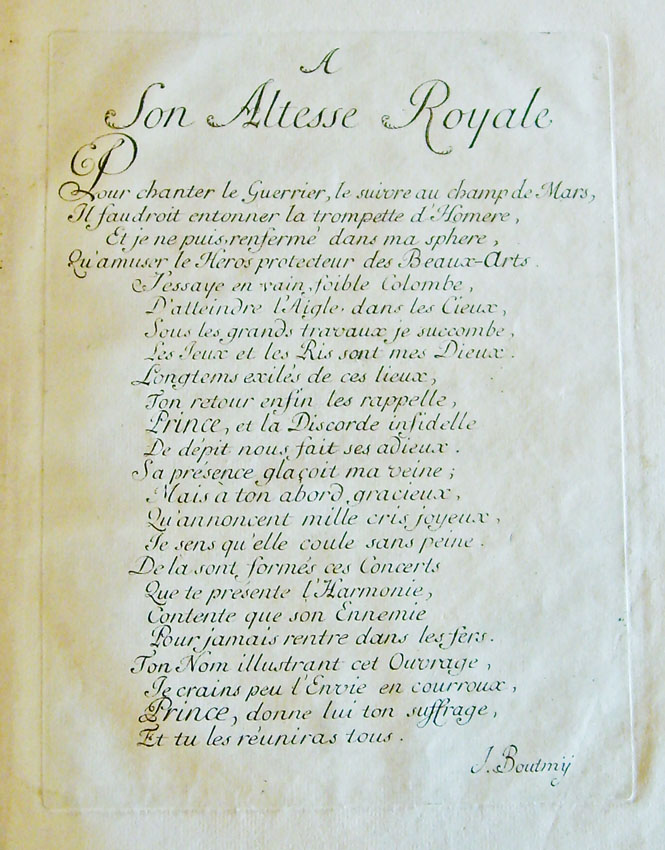 A
Son Altesse Royale
Pour chanter le Guerrier, le suivre au champ de Mars,
Il faudroit entonner la trompette d'Homere,
Et je ne puis, renfermé dans ma sphere,
Qu'amuser le Héros protecteur des Beaux-Arts.
J'essaye en vain, foible Colombe,
D'atteindre l'Aigle dans les Cieux,
Sous les grands travaux je succombe,
Les Jeux et les Ris sont mes Dieux.
Longtems exilés de ces lieux,
Ton retour enfin les rappelle,
Prince, et la Discorde infidelle
De dépit nous fait ses adieux.
Sa présence glaçoit ma veine;
Mais à ton abord gracieux,
Qu'annoncent mille cris joyeux,
Je sens qu'elle coule sans peine.
De la sont formés ces Concerts
Que te présente l'Harmonie,
Contente que son Ennemie
Pour jamais rentre dans les fers.
Ton Nom illustrant cet Ouvrage,
Je crains peu l'Envie en courroux,
Prince, donne lui ton suffrage,
Et tu les réuniras tous.
J. Boutmÿ